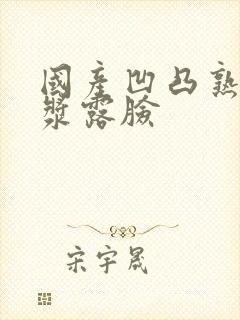 國產凹凸熟
漿露臉
宋宇晟